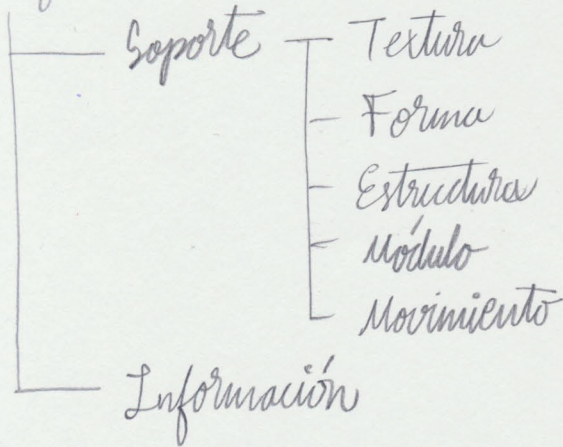 Soporte Textura
Forma
Estructura
Módulo
Movimiento
Información